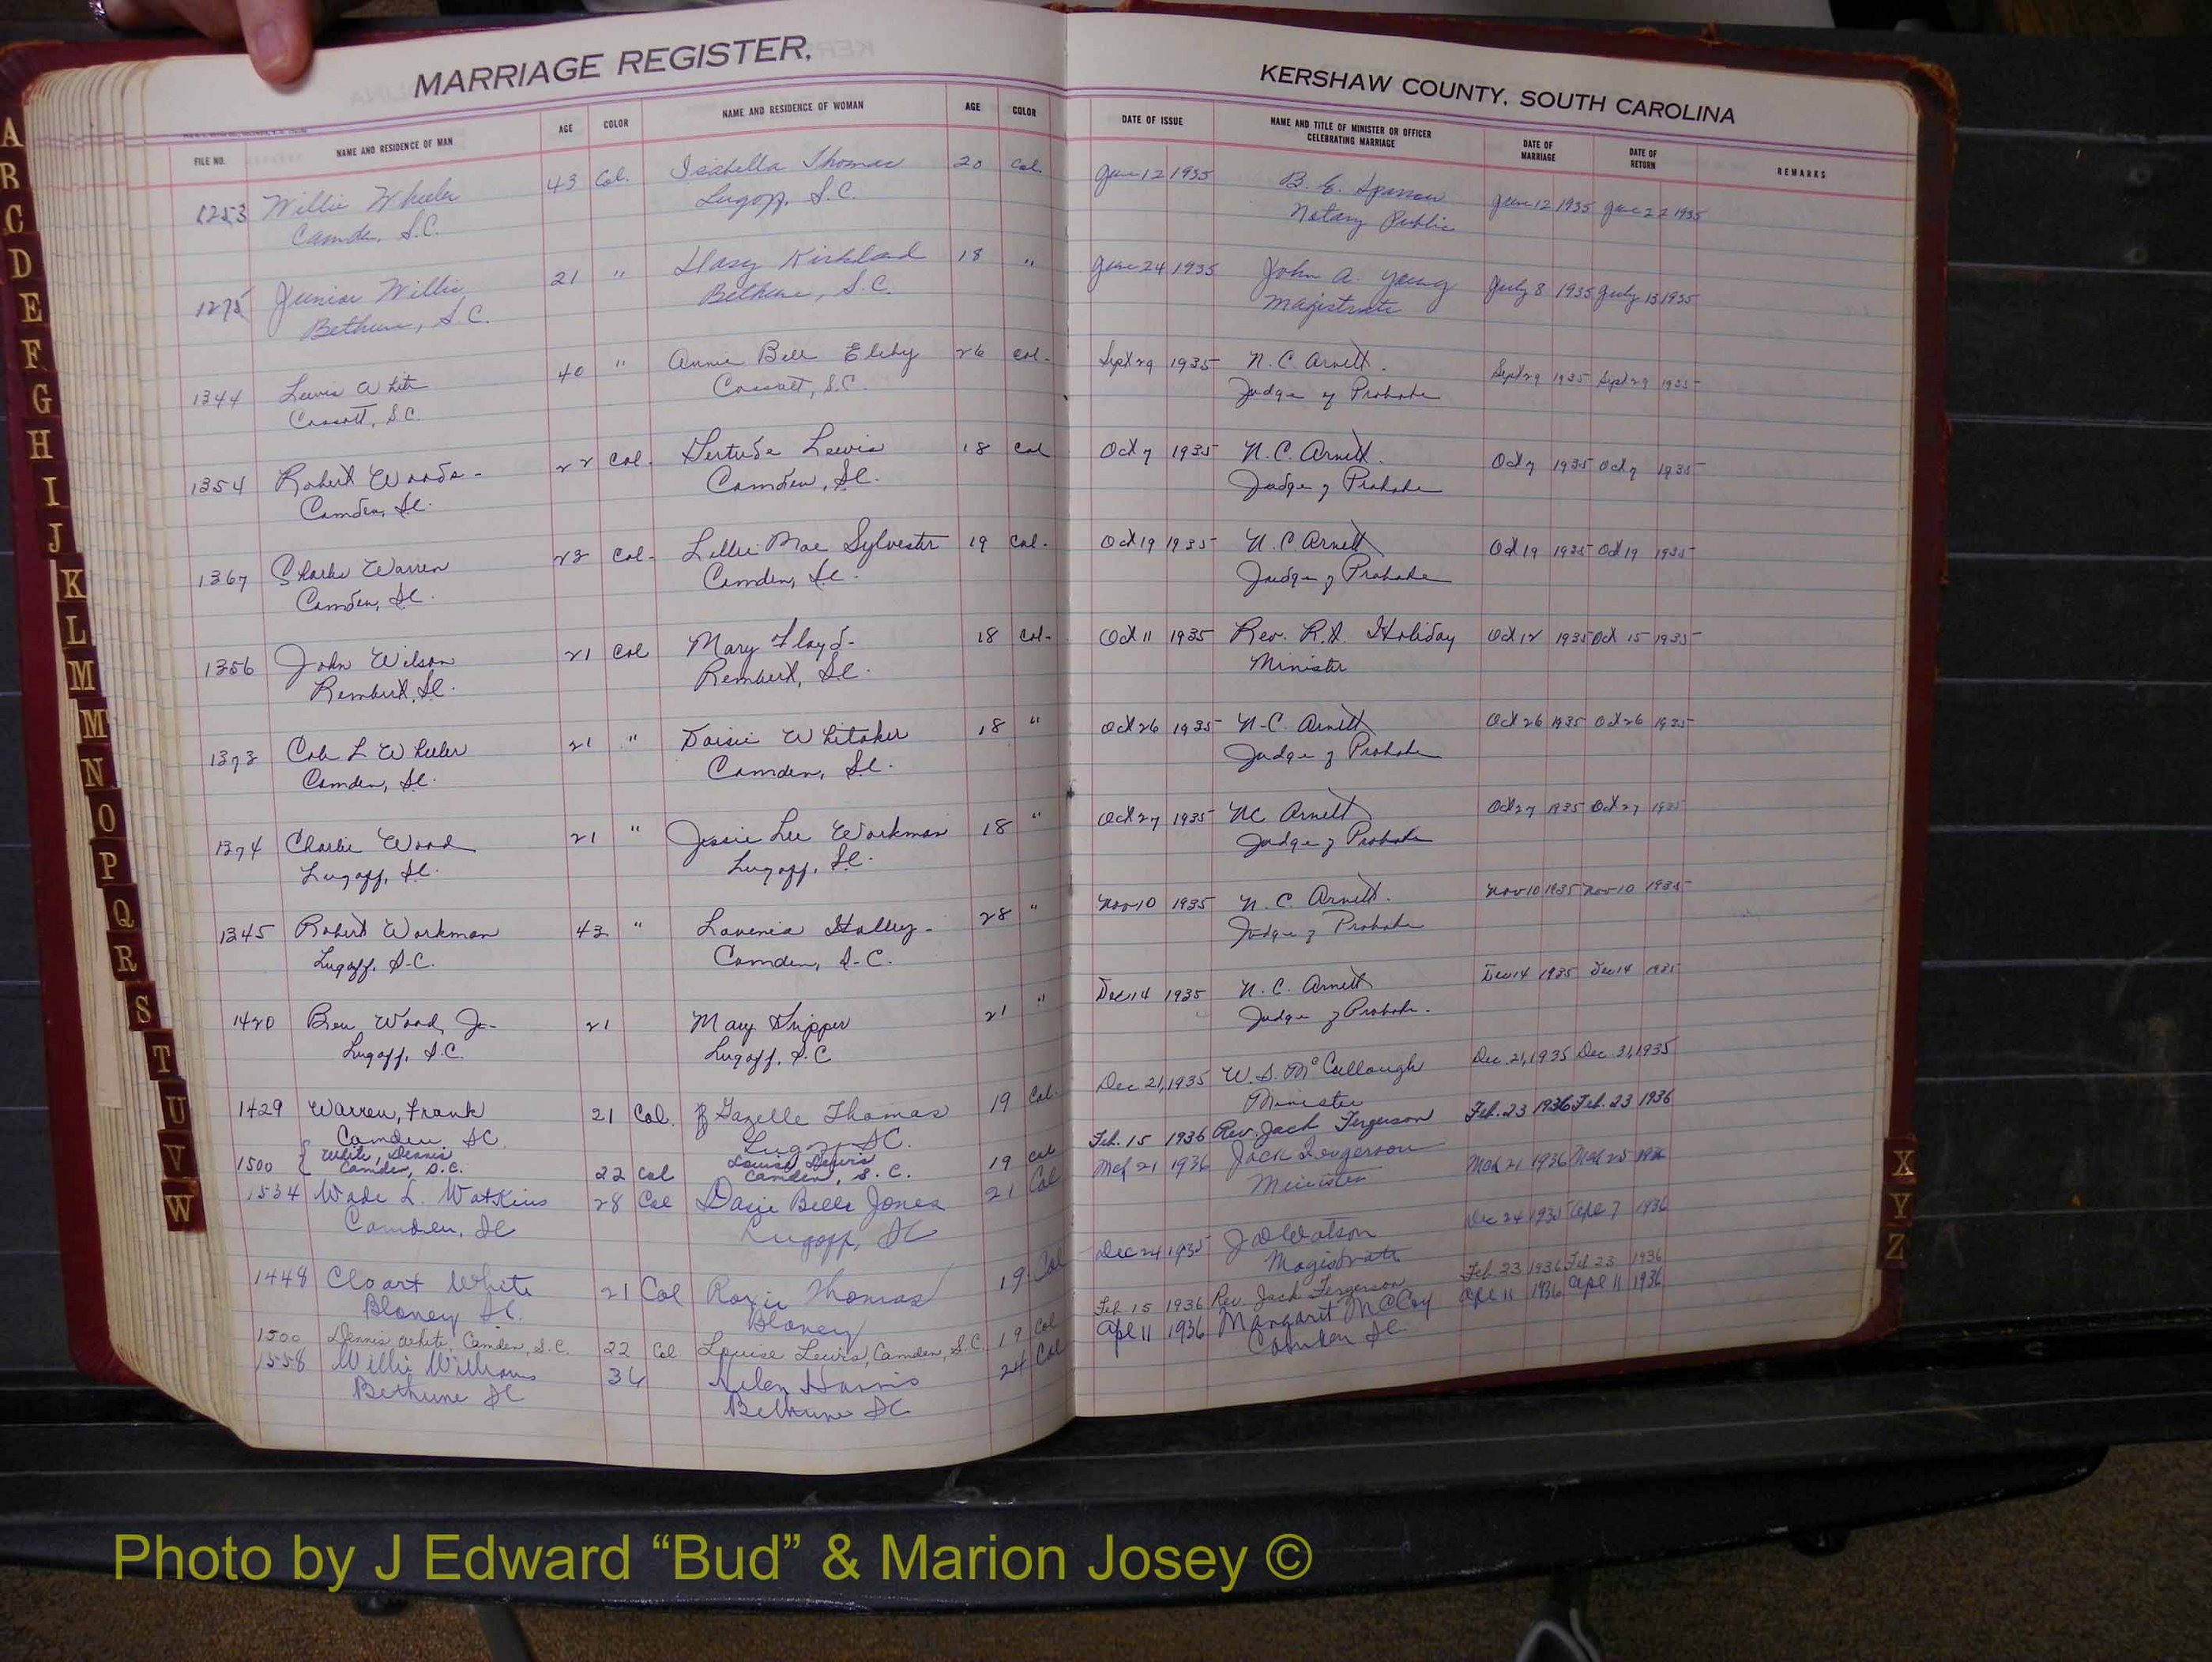 MARRIAGE REGISTER,
KERSHAW COUNTY, SOUTH CAROLINA
FILE NO. NAME AND RESIDENCE OF MAN AGE COLOR NAME AND RESIDENCE OF WOMAN AGE COLOR DATE OF ISSUE NAME AND TITLE OF MINISTER OR OFFICER CELEBRATING MARRIAGE DATE OF MARRIAGE DATE OF RETURN REMARKS
1253 Willie Wheeler 43 Col. Isabella Thomas 20 Col. June 12 1935 B. E. Sparrow June 12 1935 June 22 1935
Camden, S.C. Lugoff, S.C. Notary Public
1275 Junior Willis 21 " Kirkland 18 " June 24 1935 John A. Young July 8 1935 July 13 1935
Bethune, S.C. Bethune, S.C. Magistrate
1344 Lewis White 40 " Annie Bell 26 Col. Sept 29 1935 N. C. Arnett. Sept 29 1935 Sept 29 1935
Cassatt, S.C. Cassatt, S.C. Judge of Probate
1354 Robert Woods 22 Col. Gertrude Lewis 18 Col Oct 7 1935 N. C. Arnett. Oct 7 1935 Oct 7 1935
Camden, S.C. Camden, S.C. Judge of Probate
1367 Warren 23 Col. Lillie Mae Sylvester 19 Col. Oct 19 1935 N. C. Arnett Oct 19 1935 Oct 19 1935
Camden, S.C. Camden, S.C. Judge of Probate
1356 John Wilson 21 Col Mary Floyd 18 Col. Oct 11 1935 Rev. R.A. Holiday Oct 12 1935 Oct 15 1935
Rembert, S.C. Rembert, S.C. Minister
1373 L Wheeler 21 " Daisie Whitaker 18 " Oct 26 1935 N. C. Arnett Oct 26 1935 Oct 26 1935
Camden, S.C. Camden, S.C. Judge of Probate
1374 Charlie Wood 21 " Jessie Lee Workman 18 " Oct 27 1935 N C Arnett Oct 27 1935 Oct 27 1935
Lugoff, S.C. Lugoff, S.C. Judge of Probate
1345 Robert Workman 43 " Lavenia 28 " Nov 10 1935 N. C. Arnett. Nov 10 1935 Nov 10 1935
Lugoff, S.C. Camden, S.C. Judge of Probate
1420 Ben Wood, Jr. 21 Mary Gripper 21 " Dec 14 1935 N. C. Arnett Dec 14 1935 Dec 14 1935
Lugoff, S.C. Lugoff, S.C Judge of Probate.
1429 Warren, Frank 21 Col. Gazelle Thomas 19 Col. Dec 21, 1935 W. S. McCullough Dec. 21, 1935 Dec. 31, 1935
Camden, SC Lugoff SC. Minister
1500 { White, Dennis 22 Col Louise Lewis 19 Col Feb. 15 1936 Rev. Jack Ferguson Feb. 23 1936 Feb. 23 1936
Camden, S.C. Camden, S.C.
1534 Wade L. Watkins 28 Col Dasie Belle Jones 21 Col Mch 21 1936 Jack Minister Mch 21 1936 Mch 25 1936
Camden, SC Lugoff, SC
1448 Cloart White 21 Col Roxie Thomas 19 Col Dec 24 1935 J D Watson Dec 24 1935 Apl 7 1936
Blaney S.C. Blaney Magistrate
1500 Dennis White, Camden, S.C. 22 Col Louise Lewis, Camden, S.C. 19 Col Feb 15 1936 Rev. Jack Fergerson Feb 23 1936 Feb 23 1936
1558 Willie Williams 36 Helen Harris 24 Col Apl 11 1936 Margaret McCoy Apl 11 1936 Apl 11 1936
Bethune SC Bethune SC Camden SC
A
B
C
D
E
F
G
H
I
J
K
L
M
M
N
O
P
Q
R
S
T
U
V
W
X
Y
Z
Photo by J Edward “Bud” & Marion Josey ©